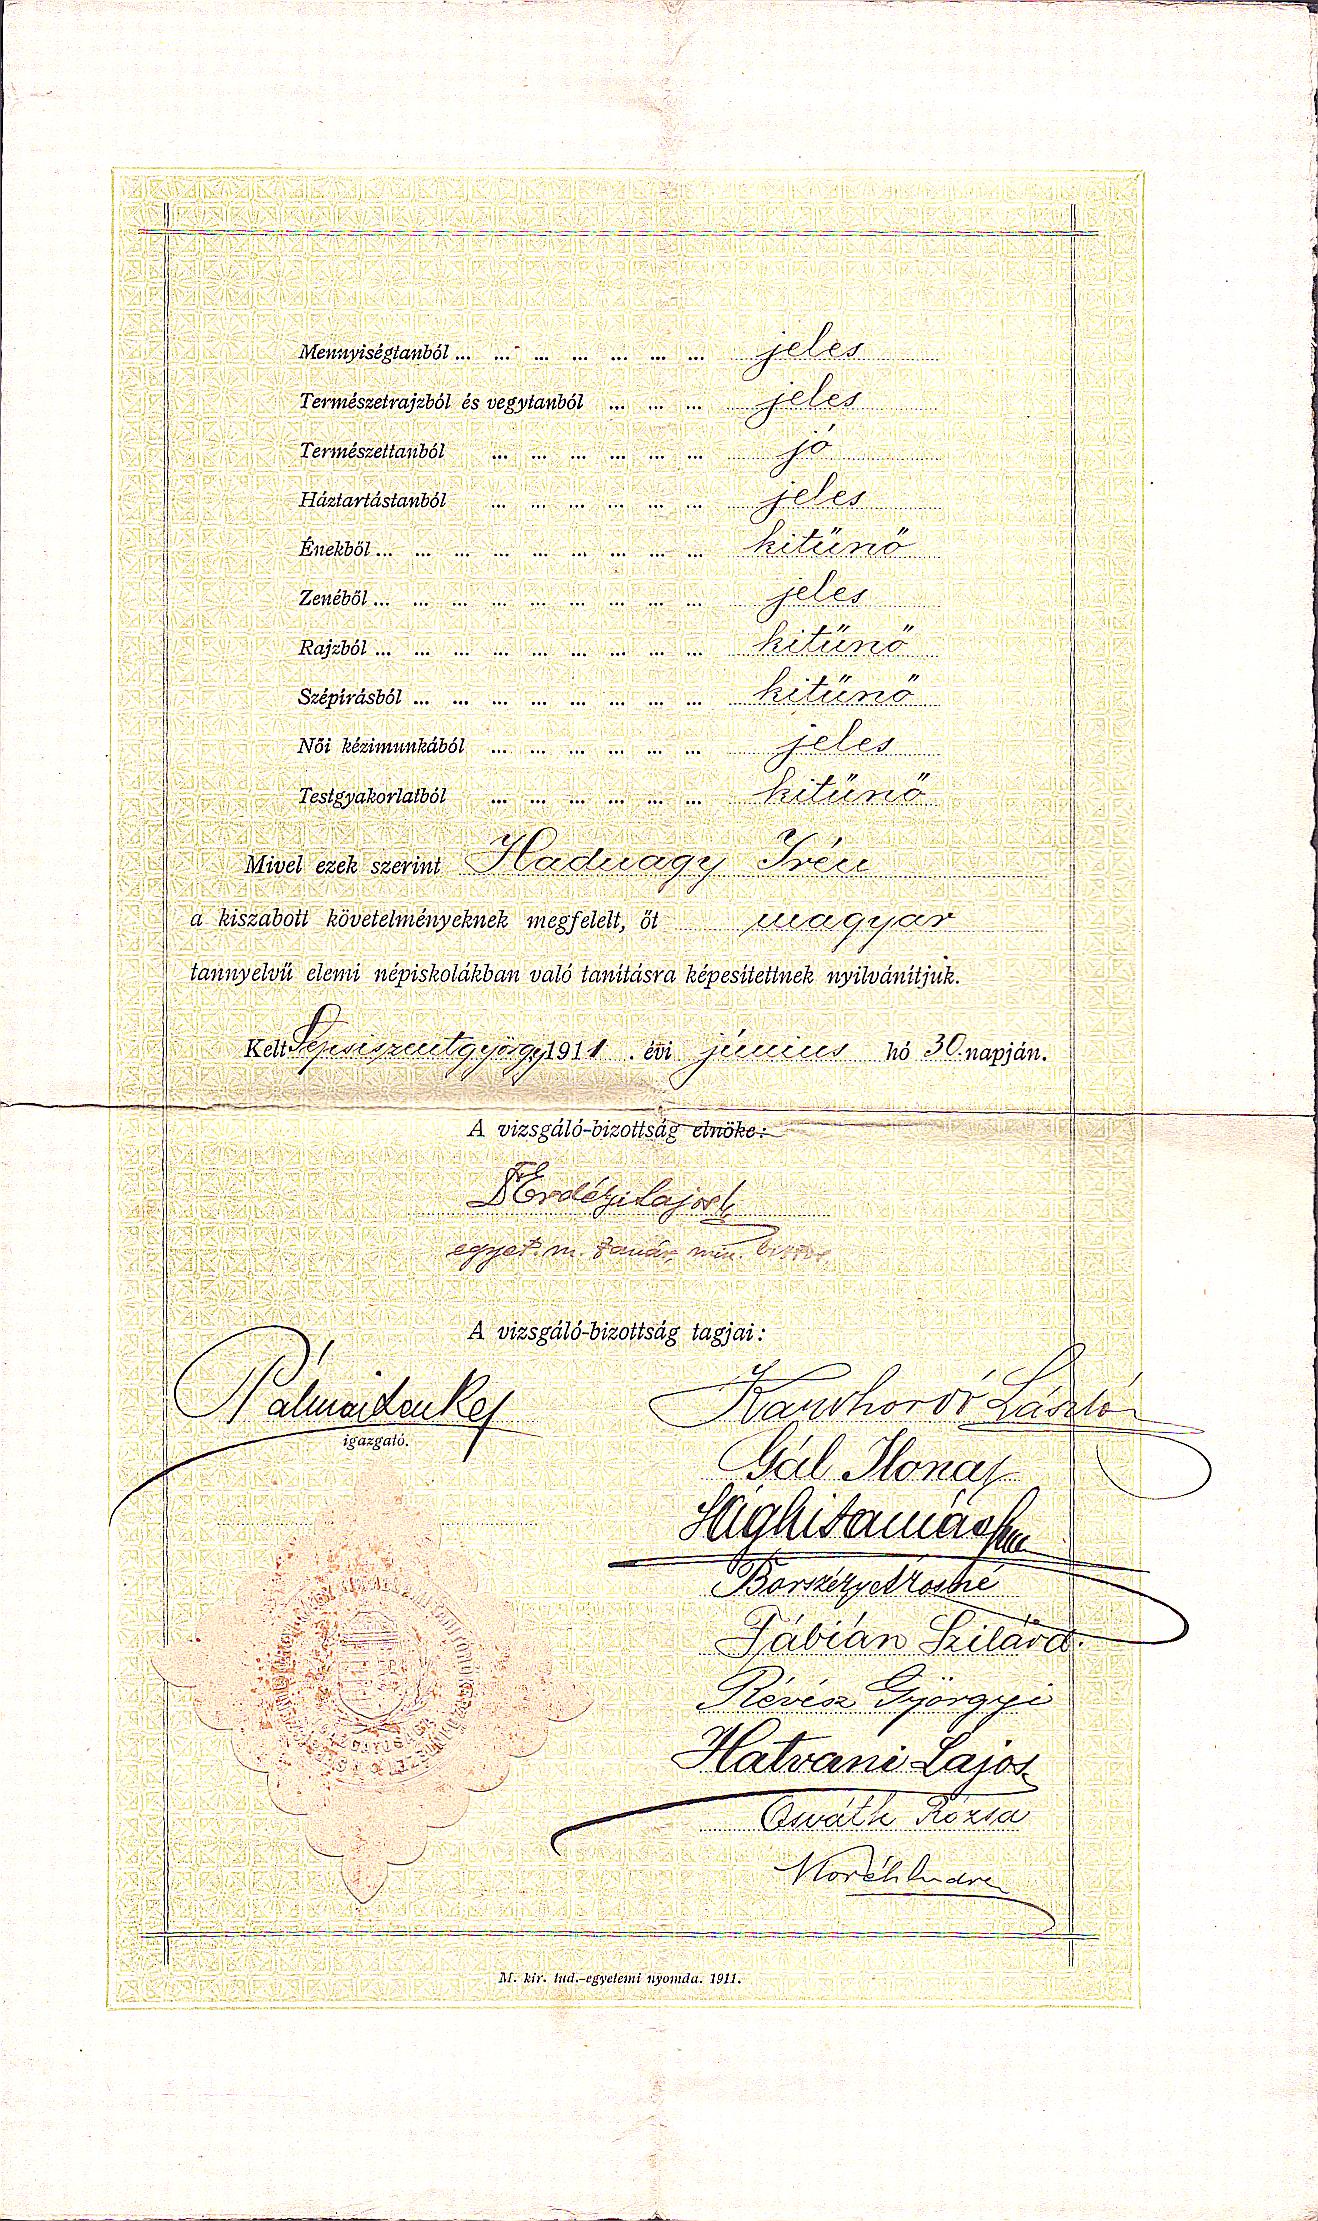 Mennyiségtanból ... ... ... ... ... ... ... jeles
Természetrajzból és vegytanból ... ... ... jeles
Természettanból ... ... ... ... ... ... jó
Háztartástanból ... ... ... ... ... ... jeles
Énekből ... ... ... ... ... ... ... ... ... kitűnő
Zenéből ... ... ... ... ... ... ... ... ... jeles
Rajzból ... ... ... ... ... ... ... ... ... kitűnő
Szépírásból ... ... ... ... ... ... ... ... kitűnő
Női kézimunkából ... ... ... ... ... ... jeles
Testgyakorlatból ... ... ... ... ... ... kitűnő
Mivel ezek szerint Hadnagy Irén
a kiszabott követelményeknek megfelelt, őt magyar
tannyelvű elemi népiskolákban való tanításra képesítettnek nyilvánítjuk.
Kelt Sepsiszentgyörgy 1911. évi június hó 30. napján.
A vizsgáló-bizottság elnöke:
Dr Erdélyi Lajos
egyet. m. tanár, min. biztos
A vizsgáló-bizottság tagjai:
Pálmai Lenke
igazgató.
László
Gál Ilona
Borszéky
Fábián Szilárd.
Révész Györgyi
Hatvani Lajos
Osváth Rózsa
M. kir. tud.-egyetemi nyomda. 1911.